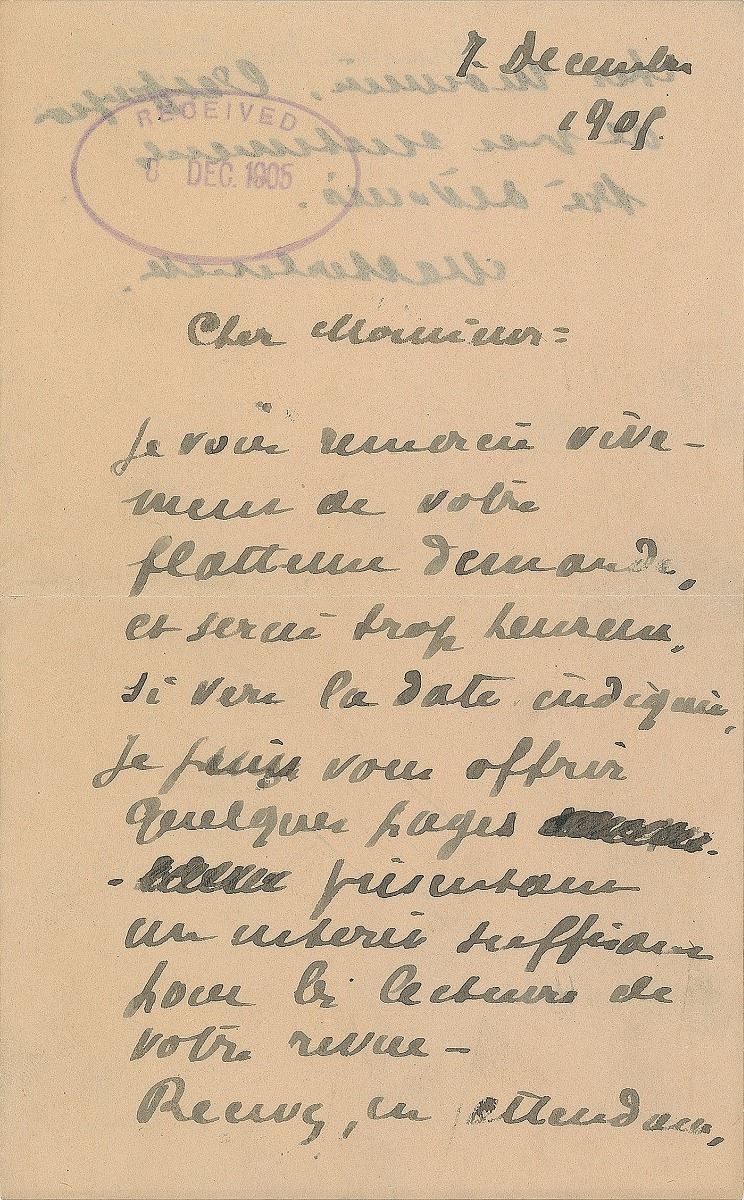 7 Decembre
1905.
RECEIVED
8 DEC. 1905
Cher Monsieur =
Je vous remercie vive-
ment de votre
flatteuse demande,
et serai trop heureux,
si vers la date indiquée,
Je puis vous offrir
quelques pages
présentant
un intérêt suffisant
pour les lecteurs de
votre revue -
Recevez, en attendant,